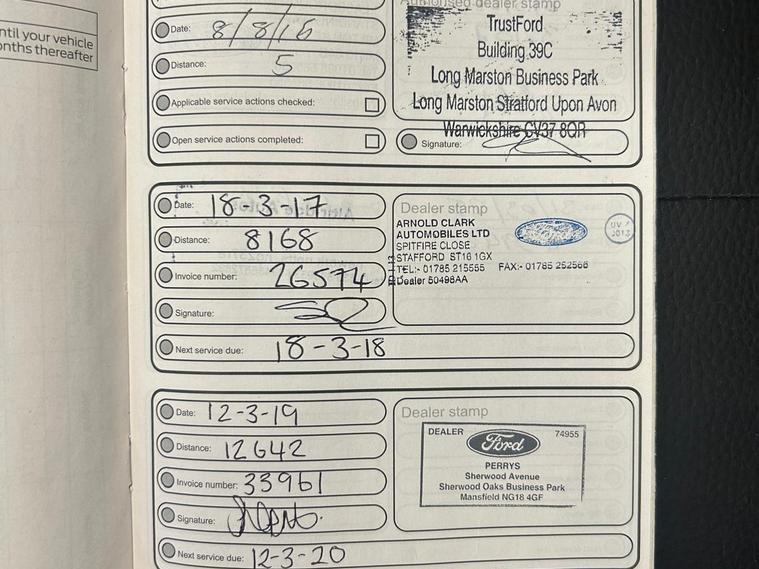 ntil your vehicle
onths thereafter
Date: 8/8/16
Distance: 5
Applicable service actions checked:
Open service actions completed:
Authorised dealer stamp
TrustFord
Building 39C
Long Marston Business Park
Long Marston Stratford Upon Avon
Warwickshire CV37 8QR
Signature:
Date: 18-3-17
Distance: 8168
Invoice number: 26574
Signature:
Next service due: 18-3-18
Dealer stamp
ARNOLD CLARK
AUTOMOBILES LTD
SPITFIRE CLOSE
STAFFORD ST16 1GX
TEL:- 01785 215555 FAX:- 01785 252566
Dealer 50498AA
Date: 12-3-19
Distance: 12642
Invoice number: 33961
Signature:
Next service due: 12-3-20
Dealer stamp
DEALER Ford 74955
PERRYS
Sherwood Avenue
Sherwood Oaks Business Park
Mansfield NG18 4GF